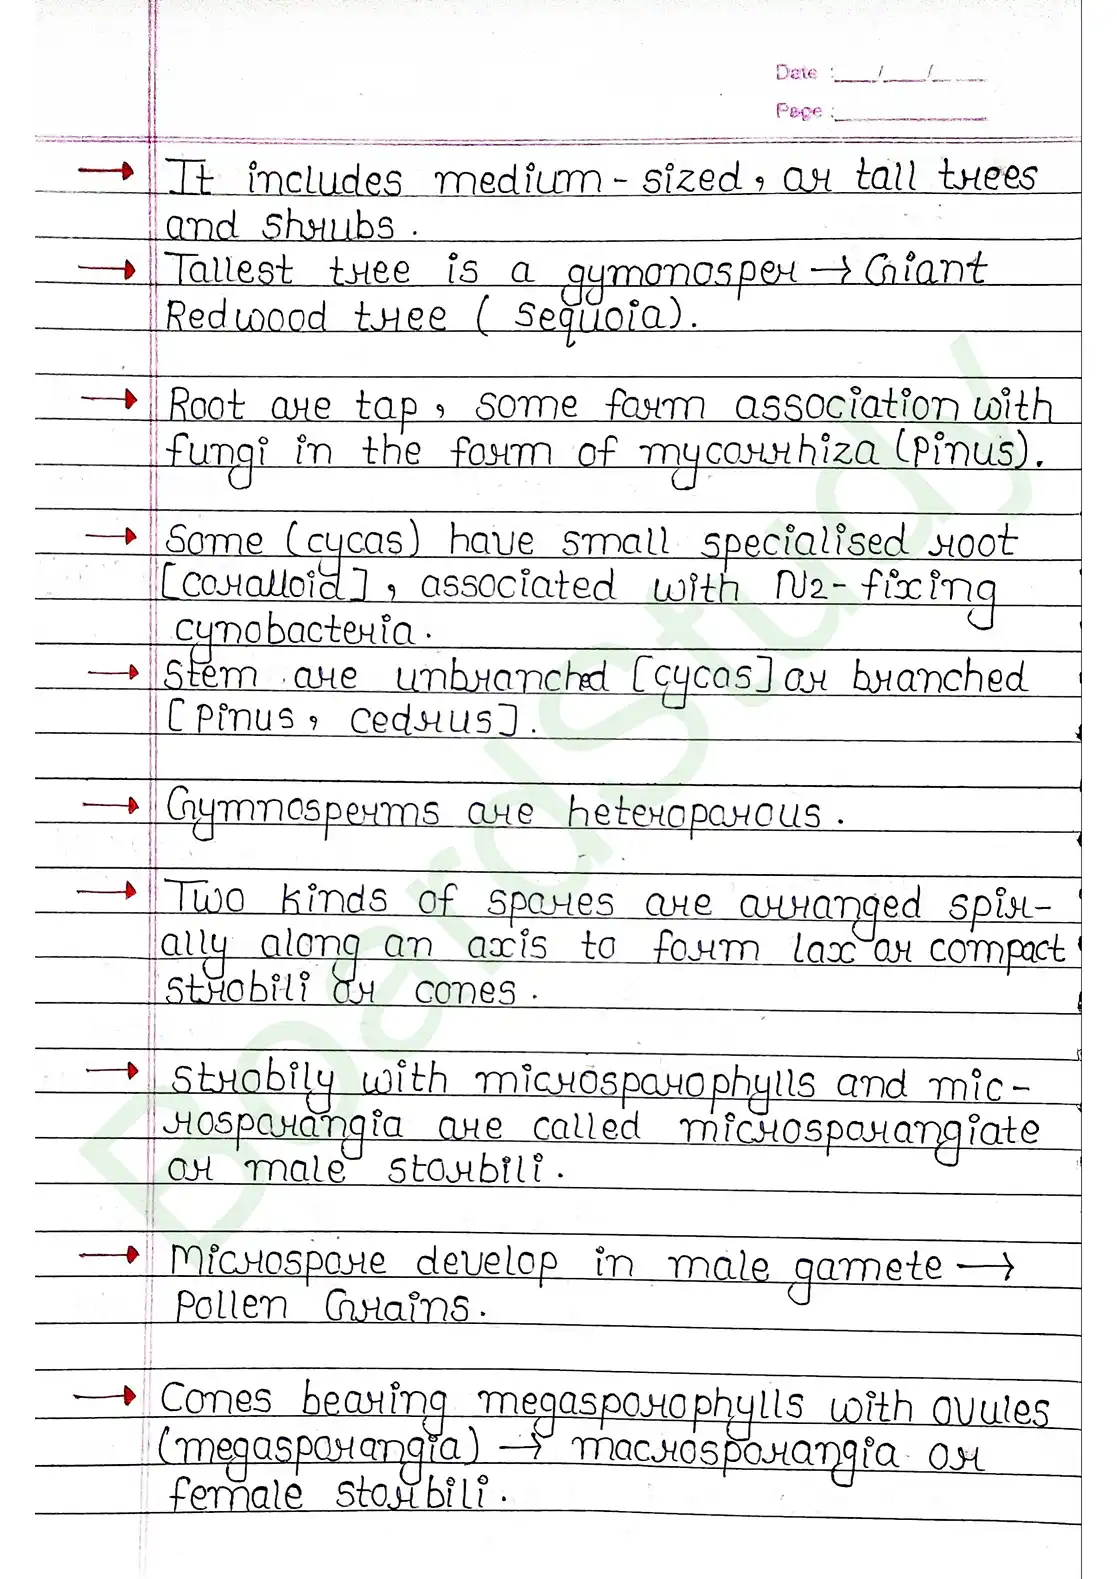 Date : __/__/__
Page : ______
→ It includes medium-sized, or tall trees
and shrubs.
→ Tallest tree is a gymonosper → Giant
Redwood tree ( Sequoia).
→ Root are tap, some form association with
fungi in the form of mycorrhiza (Pinus).
→ Some (cycas) have small specialised root
[coralloid], associated with N2-fixing
cynobacteria.
→ Stem are unbranched [cycas] or branched
[Pinus, Cedrus].
→ Gymnosperms are heteroporous.
→ Two kinds of spores are arranged spir-
ally along an axis to form lax or compact
strobili or cones.
→ strobily with microsporophylls and mic-
rosporangia are called microsporangiate
or male storbili.
→ Microspore develop in male gamete →
Pollen Grains.
→ Cones bearing megasporophylls with ovules
(megasporangia) → macrosporangia or
female storbili.
BoardStudy